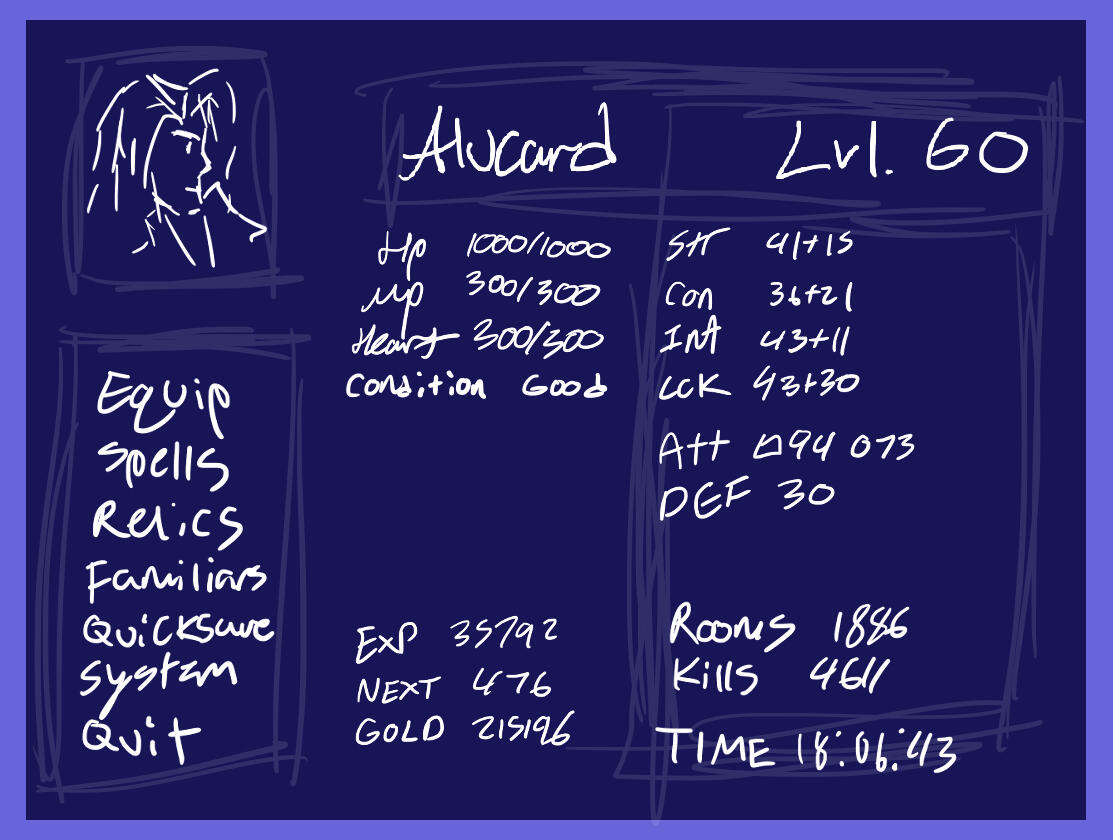 Alucard Lvl. 60
Hp 1000/1000
Mp 300/300
Heart 300/300
Condition Good
Str 41+15
Con 36+21
Int 43+11
LcK 43+30
Att □94 073
DEF 30
Equip
Spells
Relics
Familiars
Quicksave
System
Quit
EXP 35792
NEXT 476
GOLD 215196
Rooms 1886
Kills 4611
TIME 18:06:43